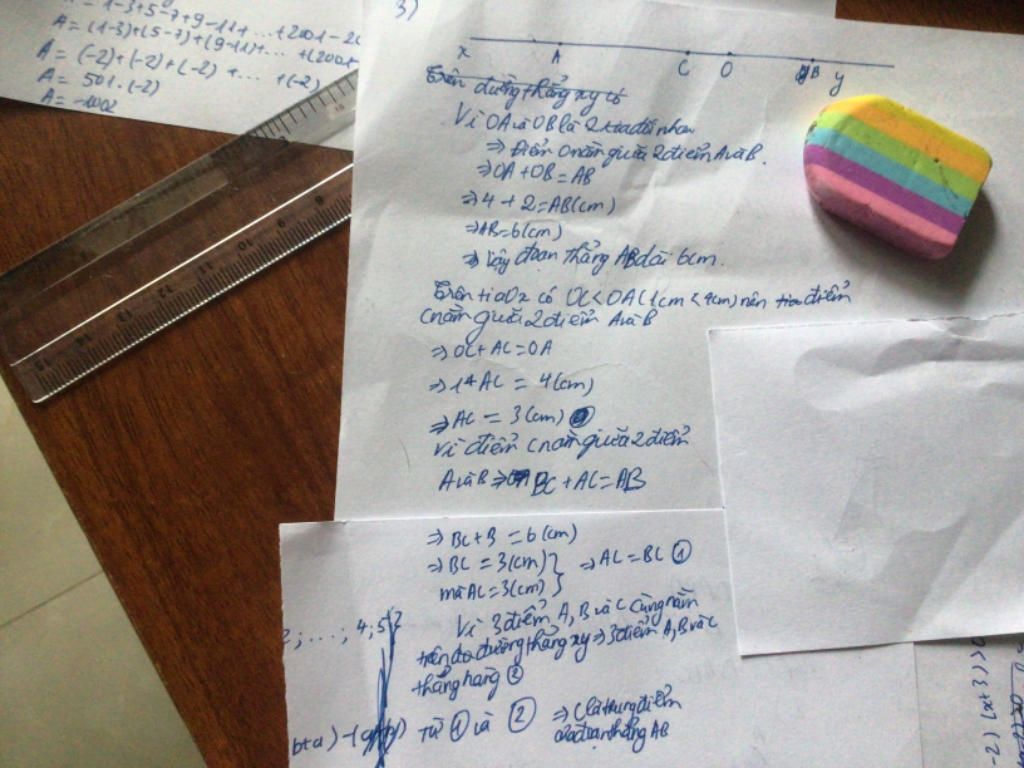 A = 1-3+5-7+9-11+...+2001-20
A = (1-3)+(5-7)+(9-11)+... +(2001
A = (-2)+(-2)+(-2) + ... +(-2)
A = 501.(-2)
A = -1002
3)
x A C O B y
Trên đường thẳng xy có
Vì OA và OB là 2 tia đối nhau
⇒ Điểm O nằm giữa 2 điểm A và B.
⇒ OA + OB = AB
⇒ 4 + 2 = AB (cm)
⇒ AB = 6 (cm)
⇒ Vậy đoạn thẳng AB dài 6cm.
Trên tia Ox có OC < OA (1cm < 4cm) nên điểm
C nằm giữa 2 điểm A và B
⇒ OC + AC = OA
⇒ 1 + AC = 4 (cm)
⇒ AC = 3 (cm)
Vì điểm C nằm giữa 2 điểm
A và B ⇒ BC + AC = AB
⇒ BC + 3 = 6 (cm)
⇒ BC = 3 (cm) } ⇒ AC = BC ①
mà AC = 3 (cm)
Vì 3 điểm A, B và C cùng nằm
trên đường thẳng xy ⇒ 3 điểm A, B và C
thẳng hàng ②
Từ ① và ② ⇒ C là trung điểm
của đoạn thẳng AB
2; ...; 4; 5
b+a) - (
-2) (x+3) > 0
9 10 11 12 13 14 15